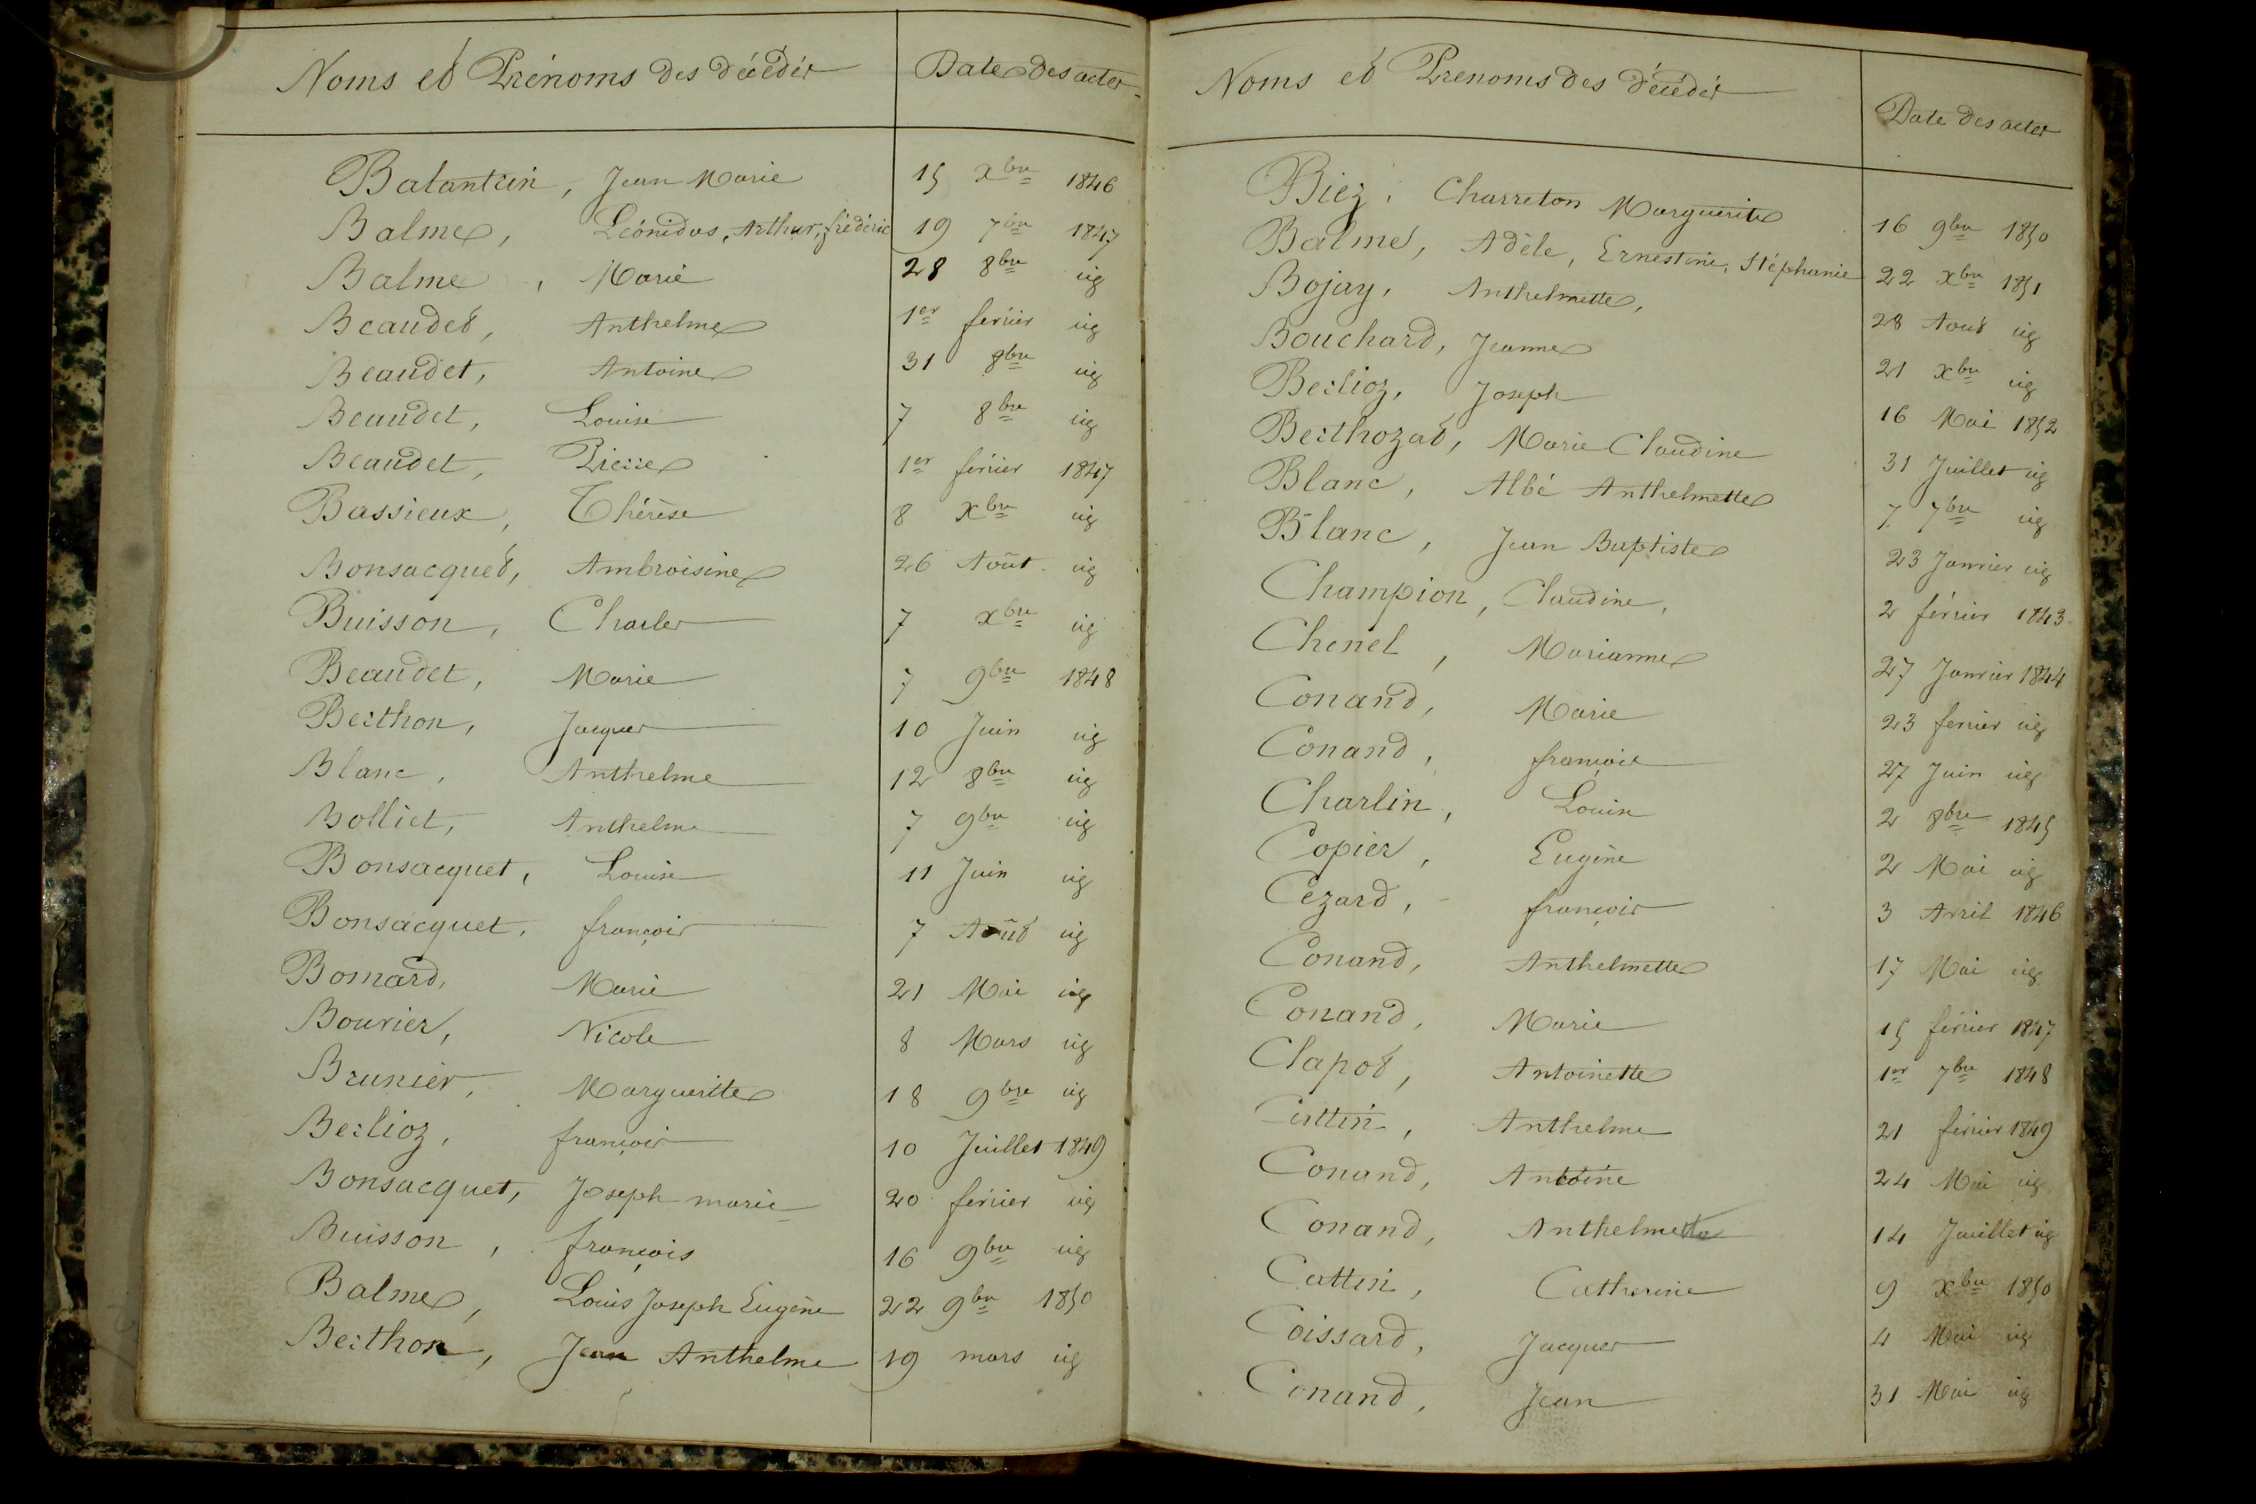 Noms et Prénoms des décédés Date des actes
Balantrin, Jean Marie 15 Xbre 1846
Balme, Léonidas, Arthur, frédéric 19 7bre 1847
Balme, Marie 28 8bre id
Beaudet, Anthelme 1er ferier id
Beaudet, Antoine 31 8bre id
Beaudet, Louise 7 8bre id
Beaudet, Pierre 1er ferier 1847
Bassieux, Thérèse 8 Xbre id
Bonsacquet, Ambroisine 26 Août id
Buisson, Charles 7 Xbre id
Beaudet, Marie 7 9bre 1848
Berthon, Jacques 10 Juin id
Blanc, Anthelme 12 8bre id
Bolliet, Anthelme 7 9bre id
Bonsacquet, Louise 11 Juin id
Bonsacquet, françois 7 Août id
Bomard, Marie 21 Mai id
Bouvier, Nicole 8 Mars id
Brunier, Margueritte 18 9bre id
Berlioz, françois 10 Juillet 1849
Bonsacquet, Joseph marie 20 ferier id
Buisson, françois 16 9bre id
Balme, Louis Joseph Eugène 22 9bre 1850
Berthon, Jean Anthelme 19 mars id
Noms et Prenoms des décédés Date des actes
Biez, Charreton Marguerite 16 9bre 1850
Balme, Adèle, Ernestine, Stéphanie 22 Xbre 1851
Bojay, Anthelmette, 28 Aout id
Bouchard, Jeanne 21 Xbre id
Berlioz, Joseph 16 Mai 1852
Berthozat, Marie Claudine 31 Juillet id
Blanc, Albé Anthelmette 7 7bre id
Blanc, Jean Baptiste 23 Janvier id
Champion, Claudine, 2 férier 1843
Chenel, Marianne 27 Janvier 1844
Conand, Marie 23 ferier id
Conand, françois 27 Juin id
Charlin, Louise 2 8bre 1845
Copier, Eugène 2 Mai id
Cezard, françois 3 Avril 1846
Conand, Anthelmette 17 Mai id
Conand, Marie 15 férier 1847
Clapot, Antoinette 1er 7bre 1848
Cattin, Anthelme 21 férier 1849
Conand, Antoine 24 Mai id
Conand, Anthelmette 14 Juillet id
Cattin, Catherine 9 Xbre 1850
Coissard, Jacques 4 Mai id
Conand, Jean 31 Mai id